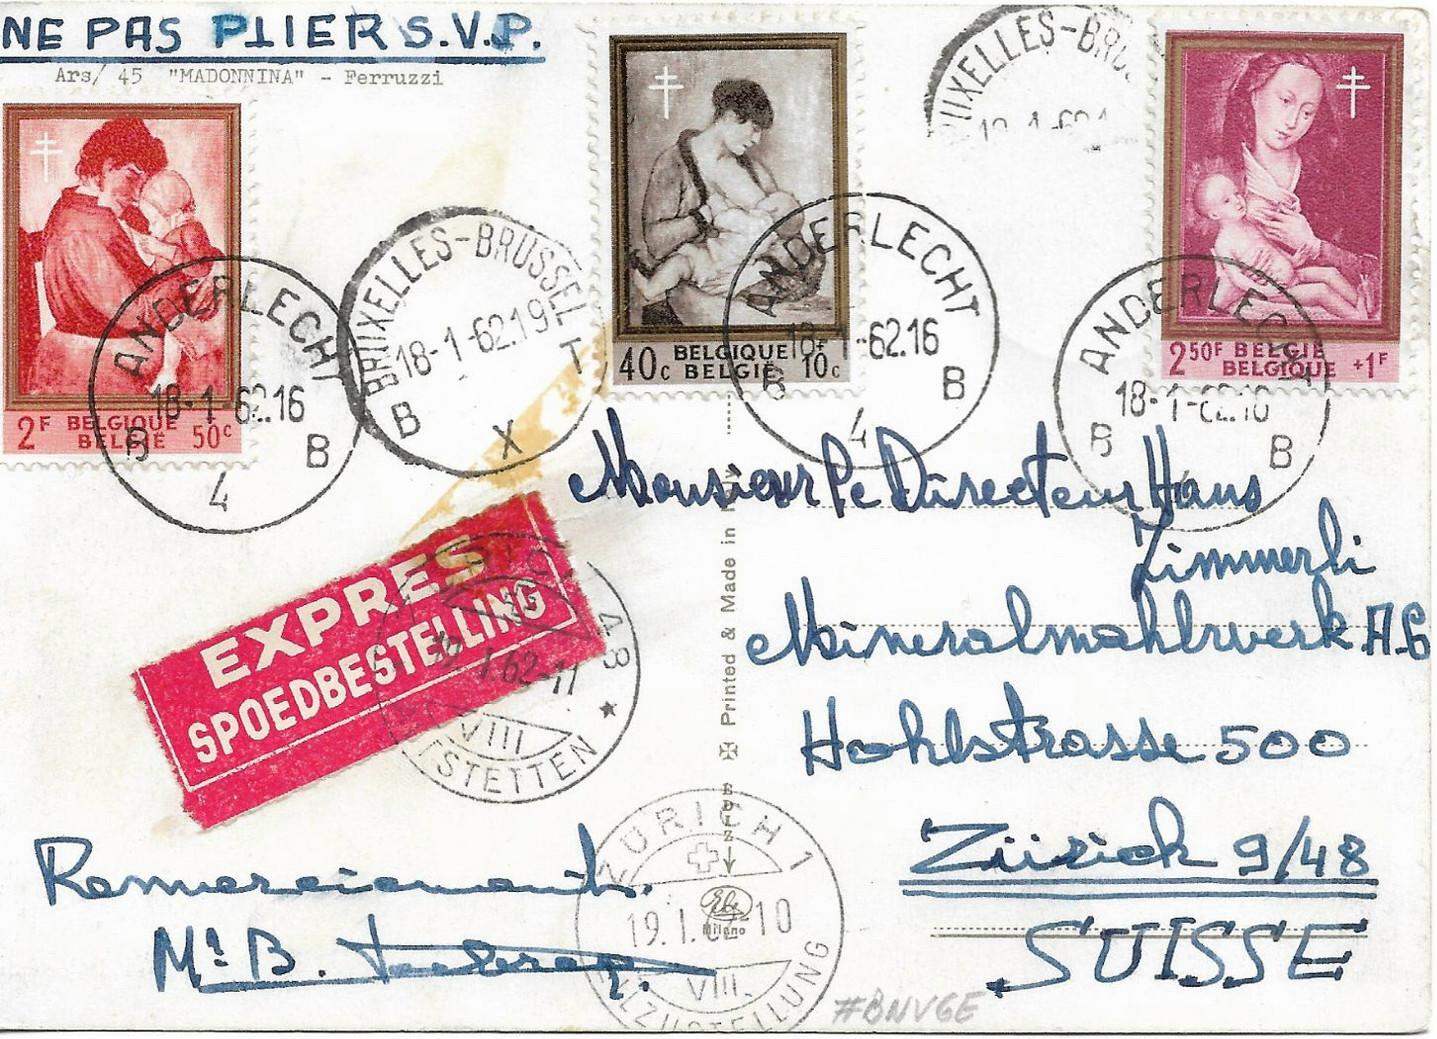 NE PAS PLIER S.V.P.
Ars/ 45 "MADONNINA" - Ferruzzi
2F BELGIQUE
BELGIË 50c
40c BELGIQUE +
BELGIË 10c
2 50F BELGIË
BELGIQUE +1F
ANDERLECHT
18-1-62.16
B B
4
BRUXELLES-BRUSSEL
18-1-62.19
B X T
ANDERLECHT
18-1-62.16
B B
4
BRUXELLES-BRU
ANDERLECHT
18-1-62.16
B B
EXPRES
SPOEDBESTELLING
48
1.62-11
VIII
TSTETTEN
Monsieur le Directeur Hans
Zimmerli
Mineralmahlwerk A.G
Hohlstrasse 500
Zürich 9/48
SUISSE
Printed & Made in
Remerciements.
Mr B.
ZÜRICH 1
19.1.62-10
VIII.
EILZUSTELLUNG
Milano
#BNVGE